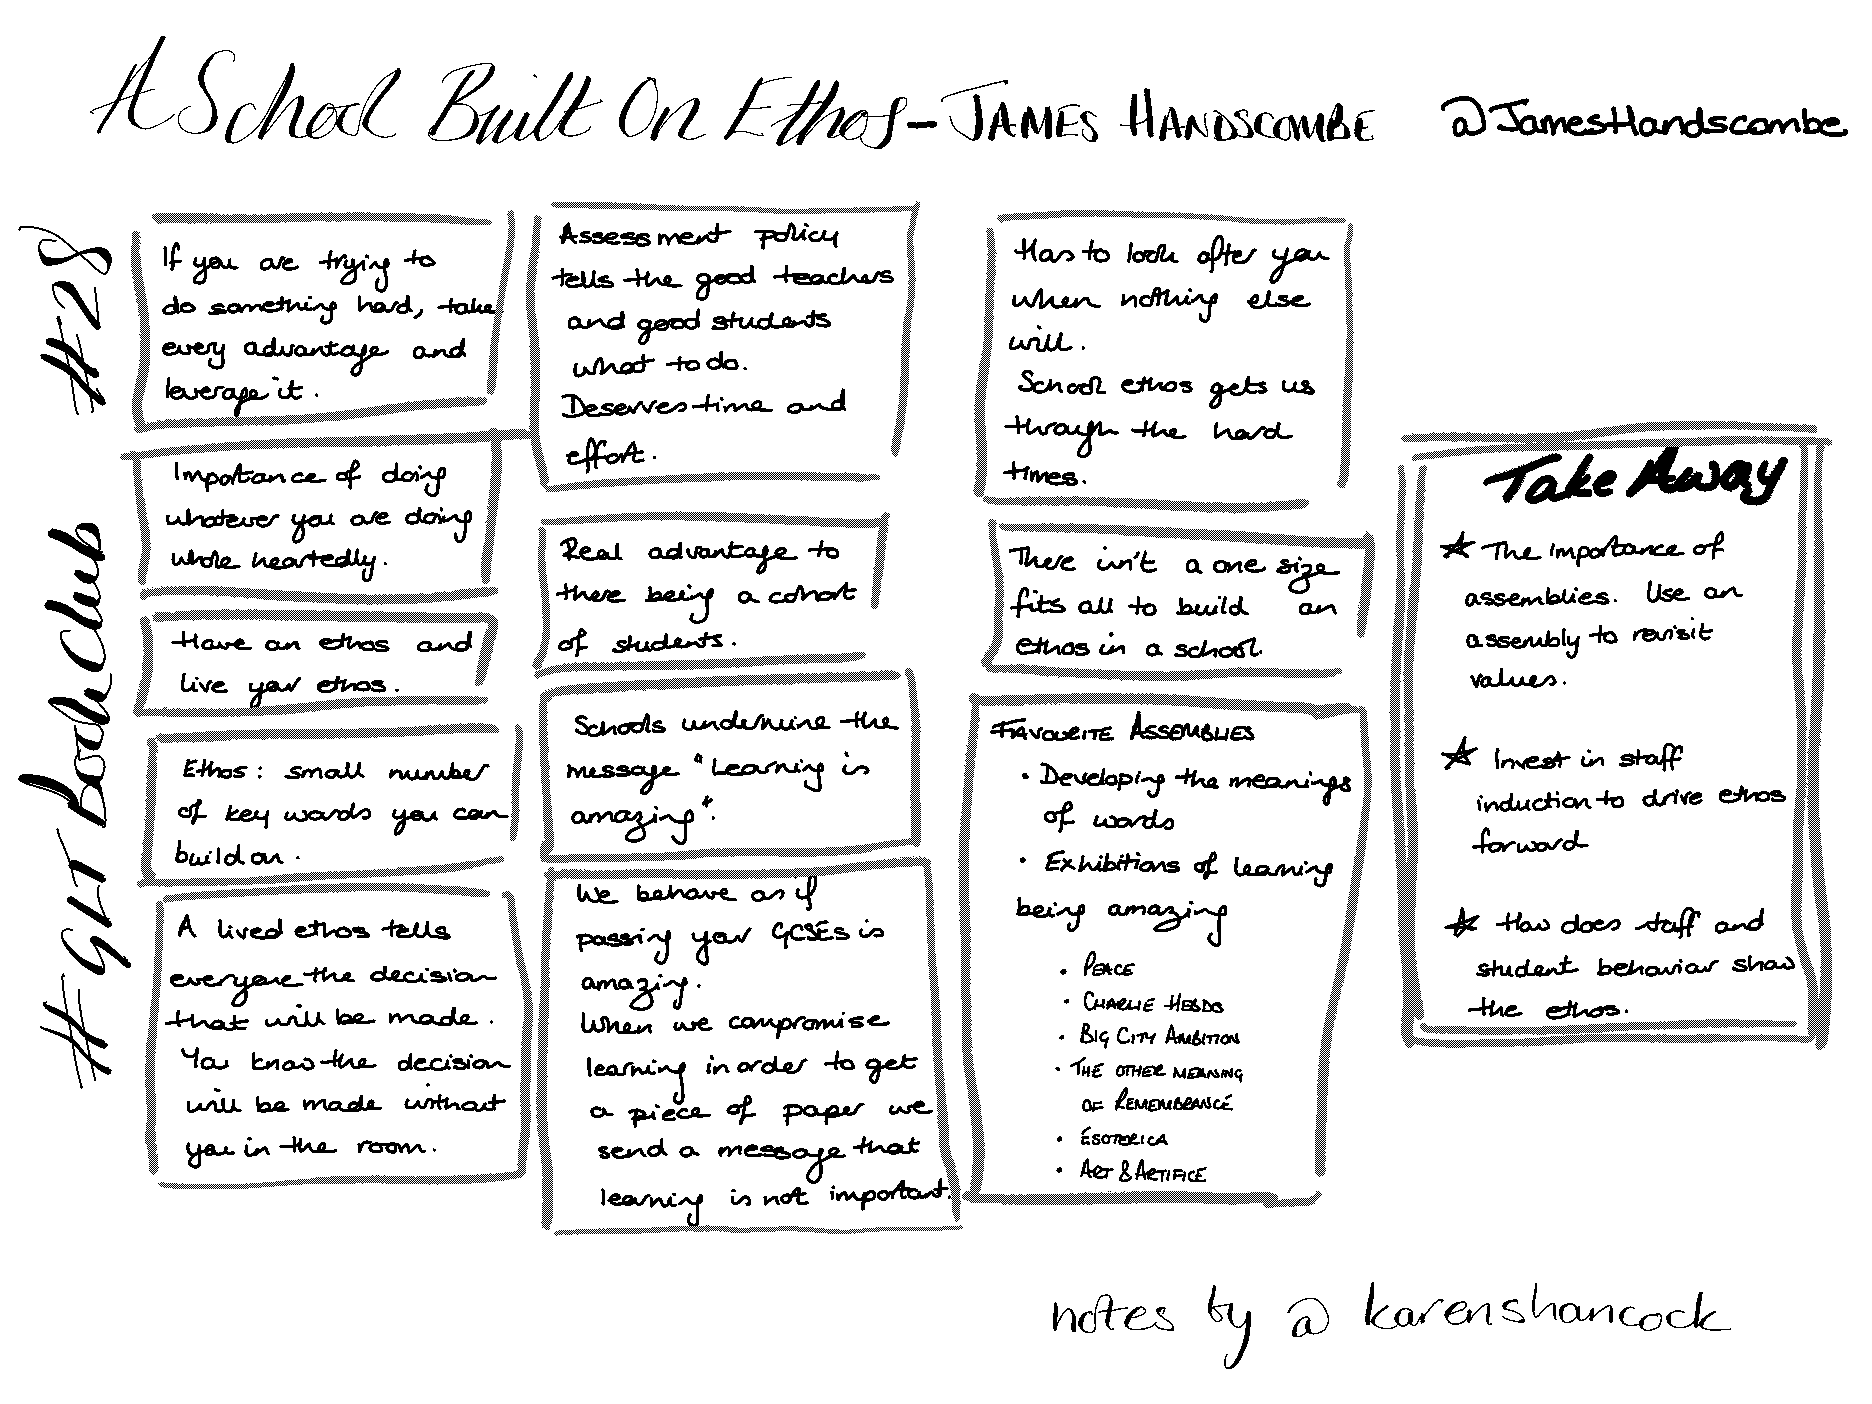 A School Built On Ethos - JAMES HANDSCOMBE @JamesHandscombe
#GLT Book Club #28
If you are trying to
do something hard, take
every advantage and
leverage it.
Importance of doing
whatever you are doing
whole heartedly.
Have an ethos and
live your ethos.
Ethos: small number
of key words you can
build on.
A lived ethos tells
everyone the decision
that will be made.
You know the decision
will be made without
you in the room.
Assessment policy
tells the good teachers
and good students
what to do.
Deserves time and
effort.
Real advantage to
there being a cohort
of students.
Schools undermine the
message "Learning is
amazing".
We behave as if
passing your GCSEs is
amazing.
When we compromise
learning in order to get
a piece of paper we
send a message that
learning is not important.
Has to look after you
when nothing else
will.
School ethos gets us
through the hard
times.
There isn't a one size
fits all to build an
ethos in a school
FAVOURITE ASSEMBLIES
• Developing the meanings
of words
• Exhibitions of learning
being amazing
• PEACE
• CHARLIE HEBDO
• BIG CITY AMBITION
• THE OTHER MEANING
OF REMEMBRANCE
• ESOTERICA
• ART & ARTIFICE
Take Away
★ The importance of
assemblies. Use an
assembly to revisit
values.
★ Invest in staff
induction to drive ethos
forward
★ How does staff and
student behaviour show
the ethos.
notes by @karenshancock